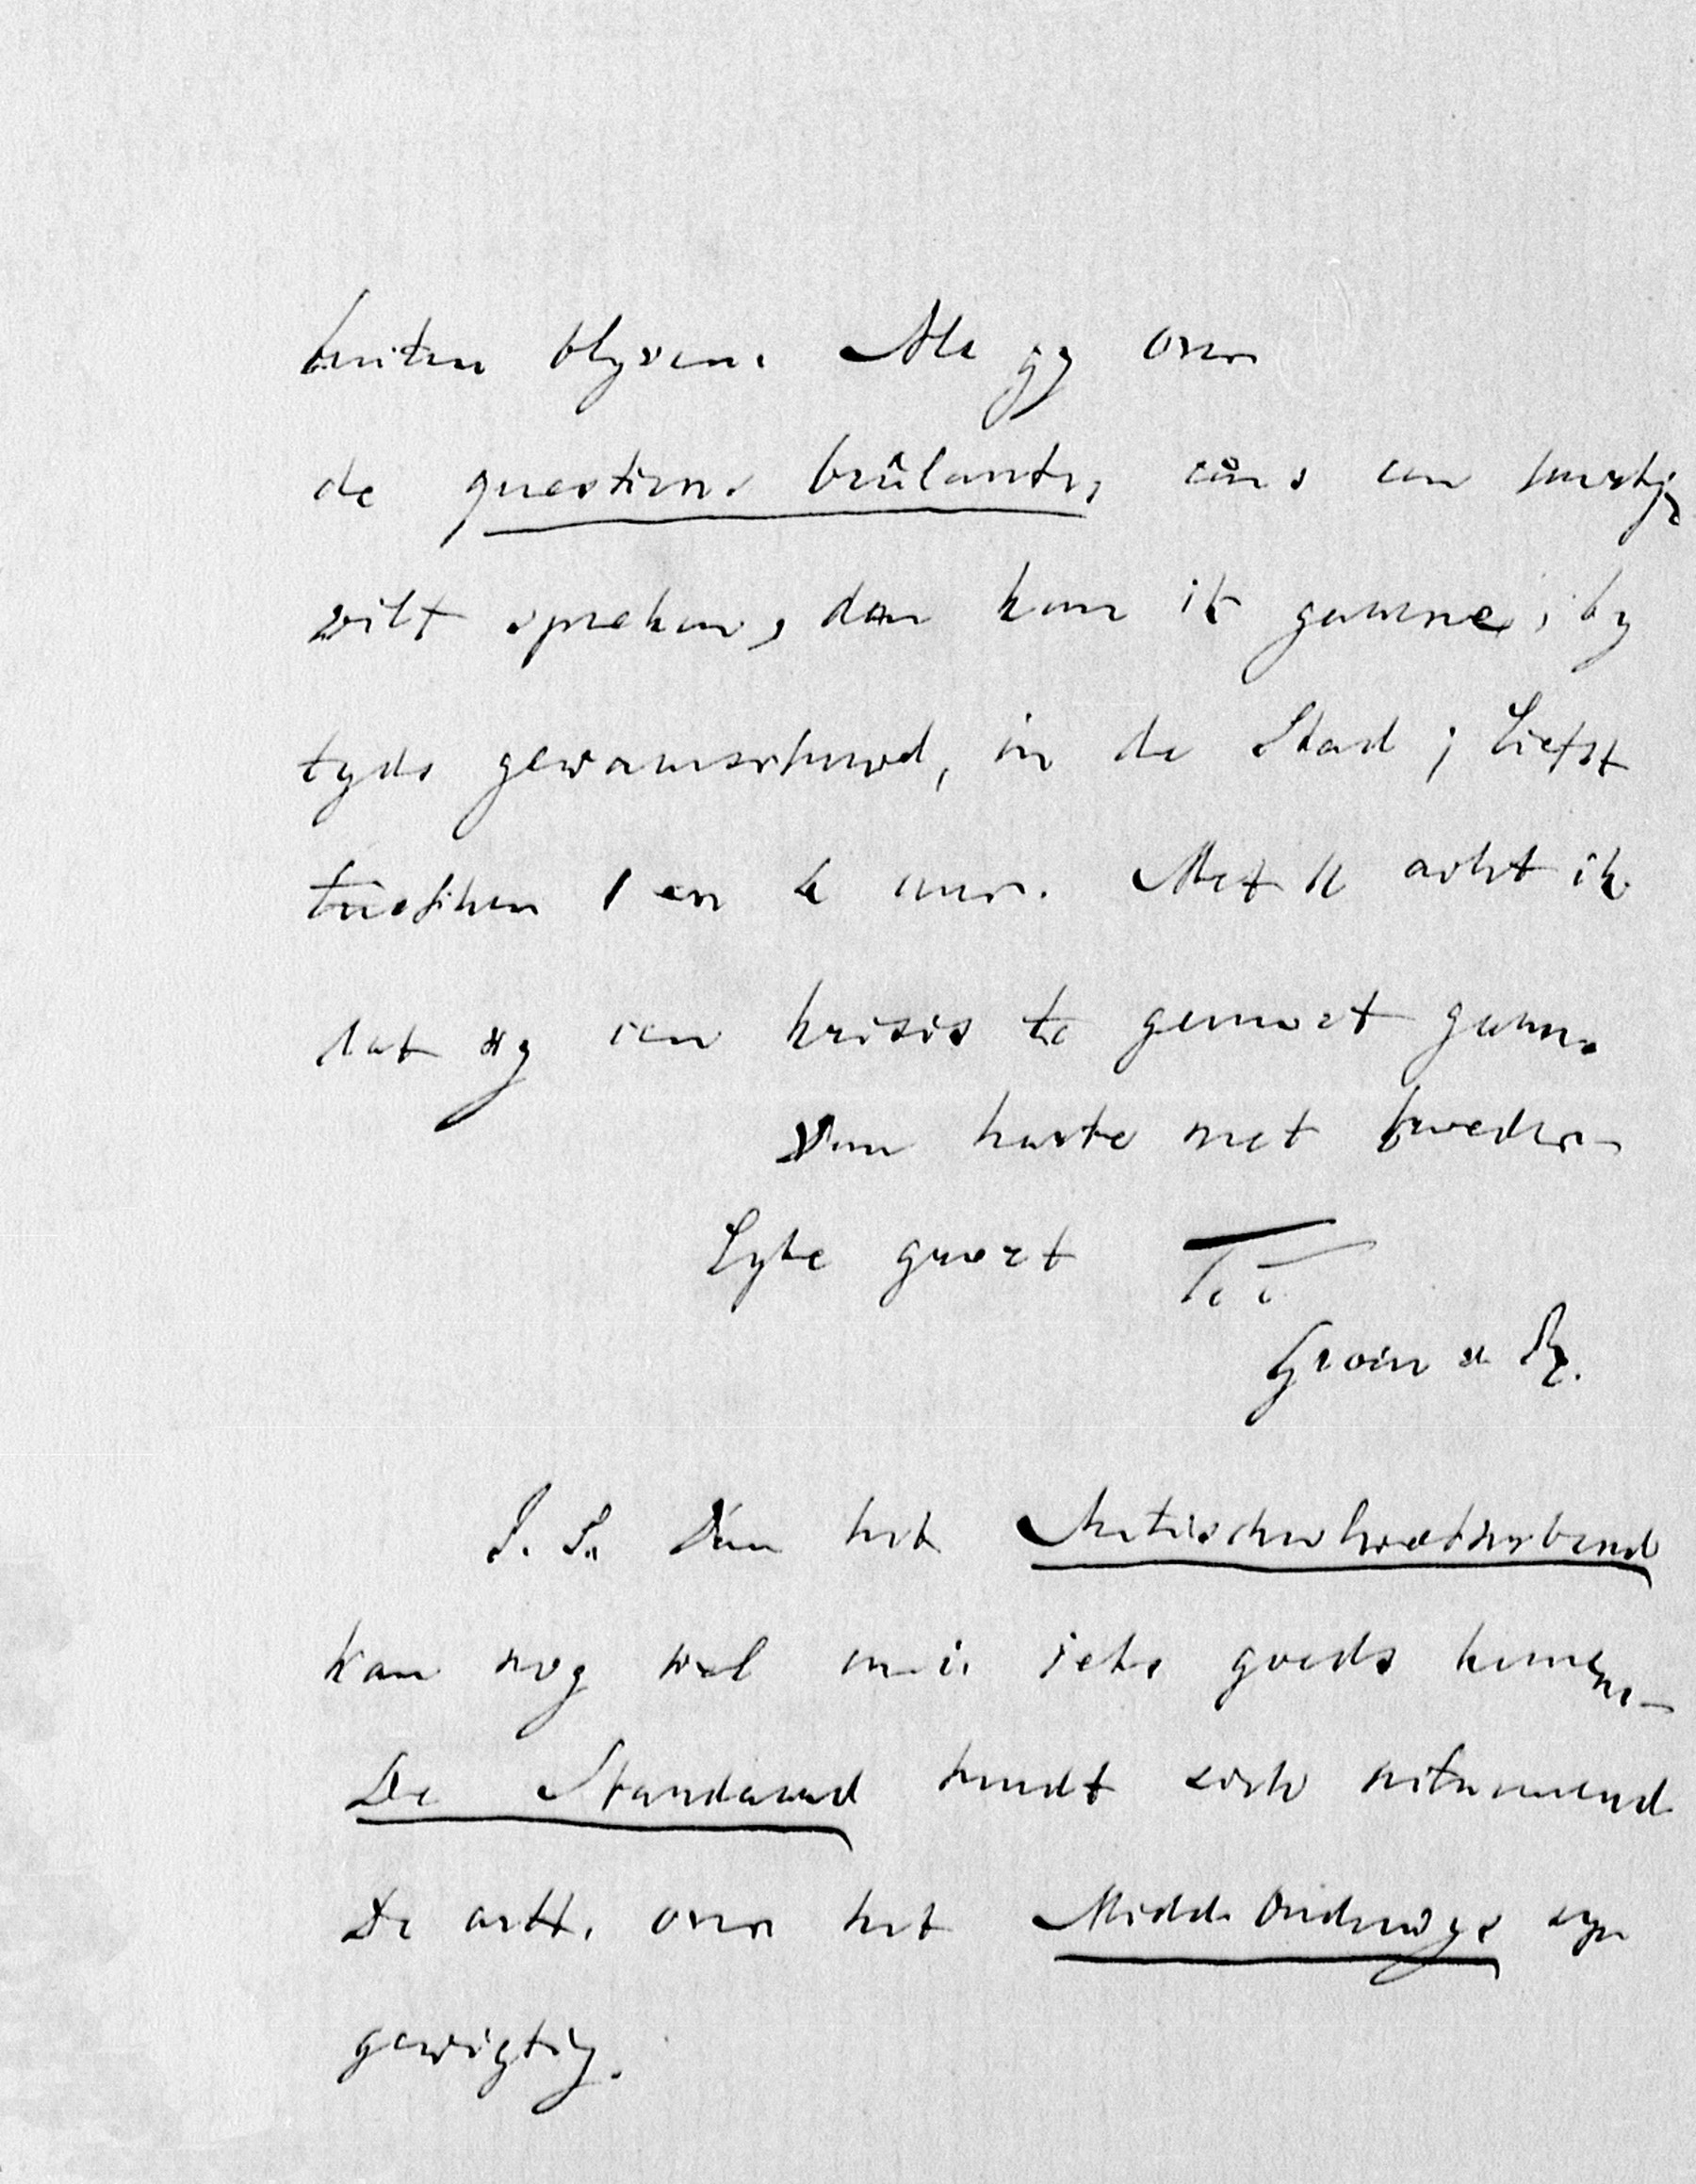 buiten blyven. Als gy over
de questions brûlantes eens een
wilt spreken, dan kom ik gaarne, by
tyds gewaarschuwd, in de Stad; liefst
tusschen 1 en 4 uur. Met U acht ik
dat wy een krisis te gemoet gaan.
Van harte met broeder-
lyke groet Tt
Groen v. Pr.
P.S. Van het Antischoolwetverbond
kan nog wel eens iets goeds komen.
De Standaard houdt zich uitnemend
De artt. over het Midd. Onderwys zyn
gewigtig.